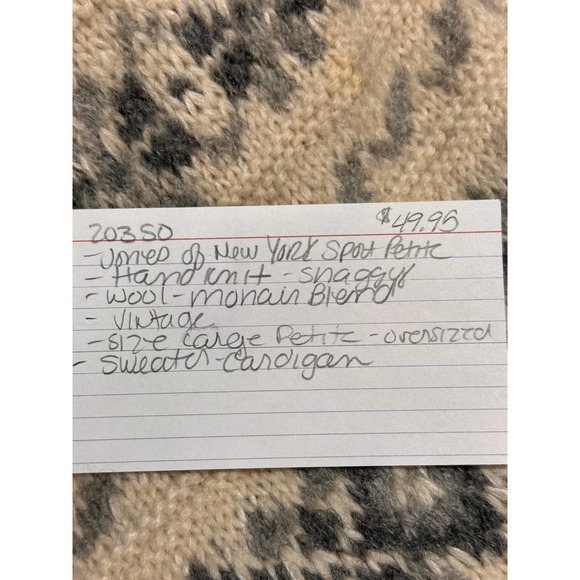 203SO $49.95
- Jones of New York Sport Petite
- Hand knit - shaggy
- Wool - mohair Blend
- Vintage
- Size Large Petite - oversized
- Sweater - Cardigan